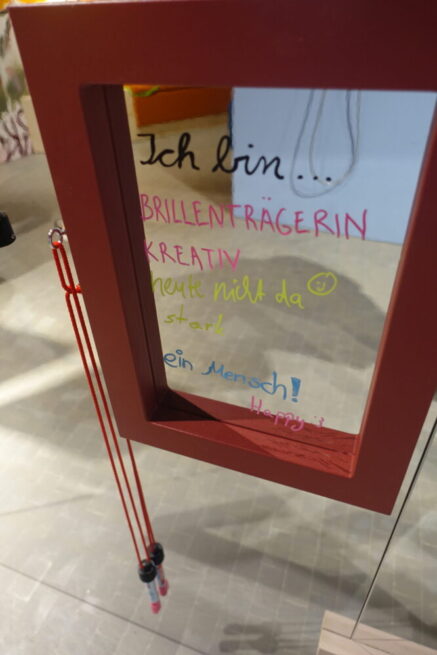 Ich bin...
BRILLENTRÄGERIN
KREATIV
heute nicht da ☺
stark
ein Mensch!
Happy :)